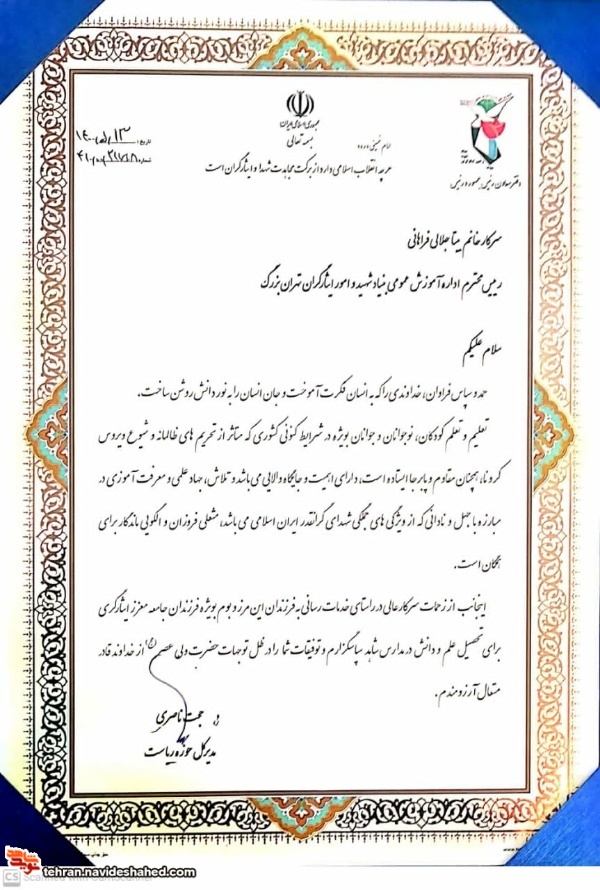 جمهوری اسلامی ایران
بسمه تعالی
تاریخ: ۱۴۰۰/۰۵/۱۳
امام خمینی
هرچه انقلاب اسلامی دارد از برکت مجاهدت شهدا و ایثارگران است
سرکار خانم بیتا جلالی فراهانی
رییس محترم اداره آموزش عمومی بنیاد شهید و امور ایثارگران تهران بزرگ
سلام علیکم
حمد و سپاس فراوان، خداوندی را که به انسان فکرت آموخت و جان انسان را به نور دانش روشن ساخت.
تعلیم و تعلم کودکان، نوجوانان و جوانان بویژه در شرایط کنونی کشوری که متأثر از تحریم های ظالمانه و شیوع ویروس
کرونا، همچنان مقاوم و پابرجا ایستاده است، دارای اهمیت و جایگاه والایی می باشد و تلاش، جهاد علمی و معرفت آموزی در
مبارزه با جهل و نادانی که از ویژگی های جملگی شهدای گرانقدر ایران اسلامی می باشد، مشعلی فروزان و الگویی ماندگار برای
همگان است.
اینجانب از زحمات سرکارعالی در راستای خدمات رسانی به فرزندان این مرز و بوم بویژه فرزندان جامعه معزز ایثارگری
برای تحصیل علم و دانش در مدارس شاهد سپاسگزارم و توفیقات شما را در ظل توجهات حضرت ولی عصر(عج) از خداوند قادر
متعال آرزومندم.
حجت ناصری
مدیرکل حوزه ریاست
نوید شاهد
tehran.navideshahed.com
CS Scanned with CamScanner